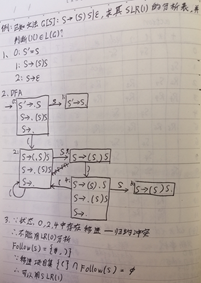 例:已知文法G[S]: S→(S)S|ε, 求其SLR(1)的分析表,并
判断()()∈L(G)?
1、0: S'→S
1: S→(S)S
2: S→ε
2. DFA
S'→.S
S→.(S)S
S→.
S
S'→S.
2:
S→(.S)S
S→.(S)S
S→.
S
S→(S.)S
S→(S).S
S→.(S)S
S→.
S
S→(S)S.
3. ∵状态0,2,4中存在移进—归约冲突
∴不能用LR(0)分析
Follow(S)={#,)}
∵移进项目集{(}∩Follow(S)=φ
∴可以用SLR(1)